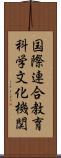 国際連合教育
科学文化機関